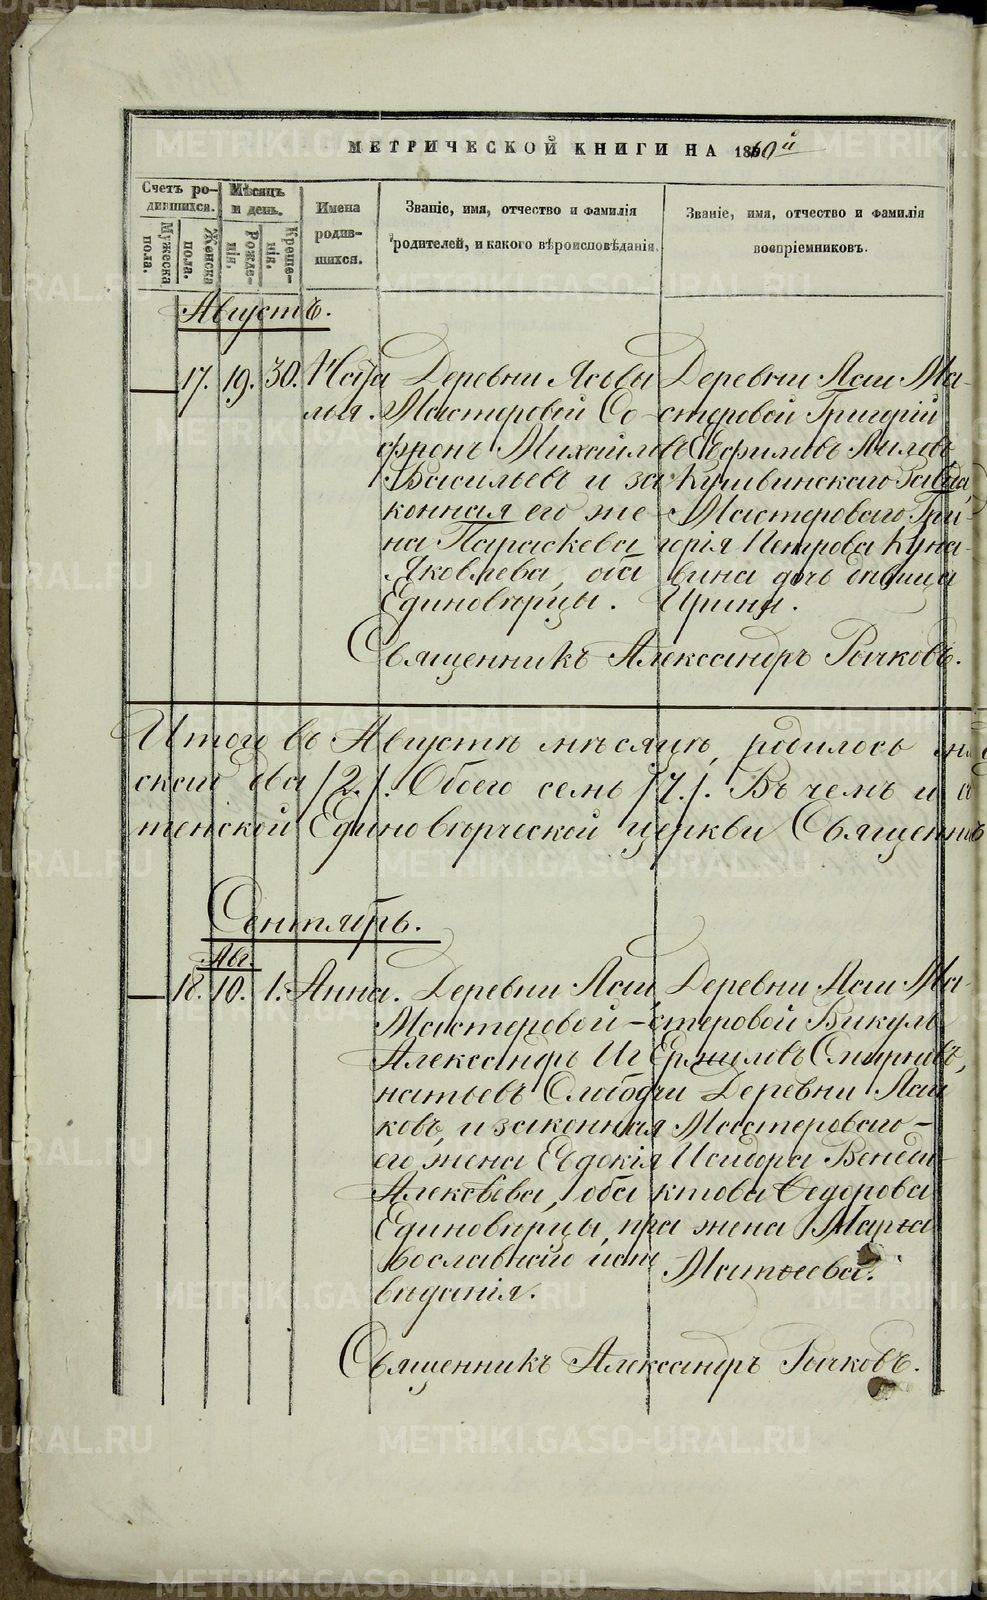 МЕТРИЧЕСКОЙ КНИГИ НА 1860й
Счетъ ро-
дившихся.
Мужеска
пола.
Женска
пола.
Мѣсяцъ
и день.
Рожде-
нія.
Креще-
нія.
Имена
родив-
шихся.
Званіе, имя, отчество и фамилія
родителей, и какого вѣроисповѣданія.
Званіе, имя, отчество и фамилія
воспріемниковъ.
Августъ.
— 17. 19. 30. Ната
лья.
Деревни
Мастеровой Со-
фронъ Михайловъ
Васильевъ и за
конная его же-
на Параскева
Яковлева, оба
Единовѣрцы.
Деревни Аси Ма-
стеровой Григорій
Ефимовъ
Кушвинскаго Завода
Мастероваго Гри-
горія Петрова Куна-
вина дочь дѣвица
Ирина.
Священникъ Александръ Рычковъ.
Итого въ Августѣ мѣсяцѣ, родилось
ской два /2/. Обоего семь /7./. Въ чемъ и
тенской Единовѣрческой церкви Священникъ
Сентябрь.
Авг.
— 18. 10. 1. Анна.
Деревни Аси,
Мастеровой
Александръ Иг
натьевъ Слободчи
ковъ, и законная
его жена Евдокія
Алексѣева, оба
Единовѣрцы, пра
вославнаго испо
вѣданія.
Деревни Аси Ма-
стеровой Викулъ
Ермиловъ Смирновъ,
Деревни Аси
Мастероваго
Исидора Венеди
ктова Ѳедорова
жена Марѳа
Матѳеева.
Священникъ Александръ Рычковъ.
METRIKI.GASO-URAL.RU